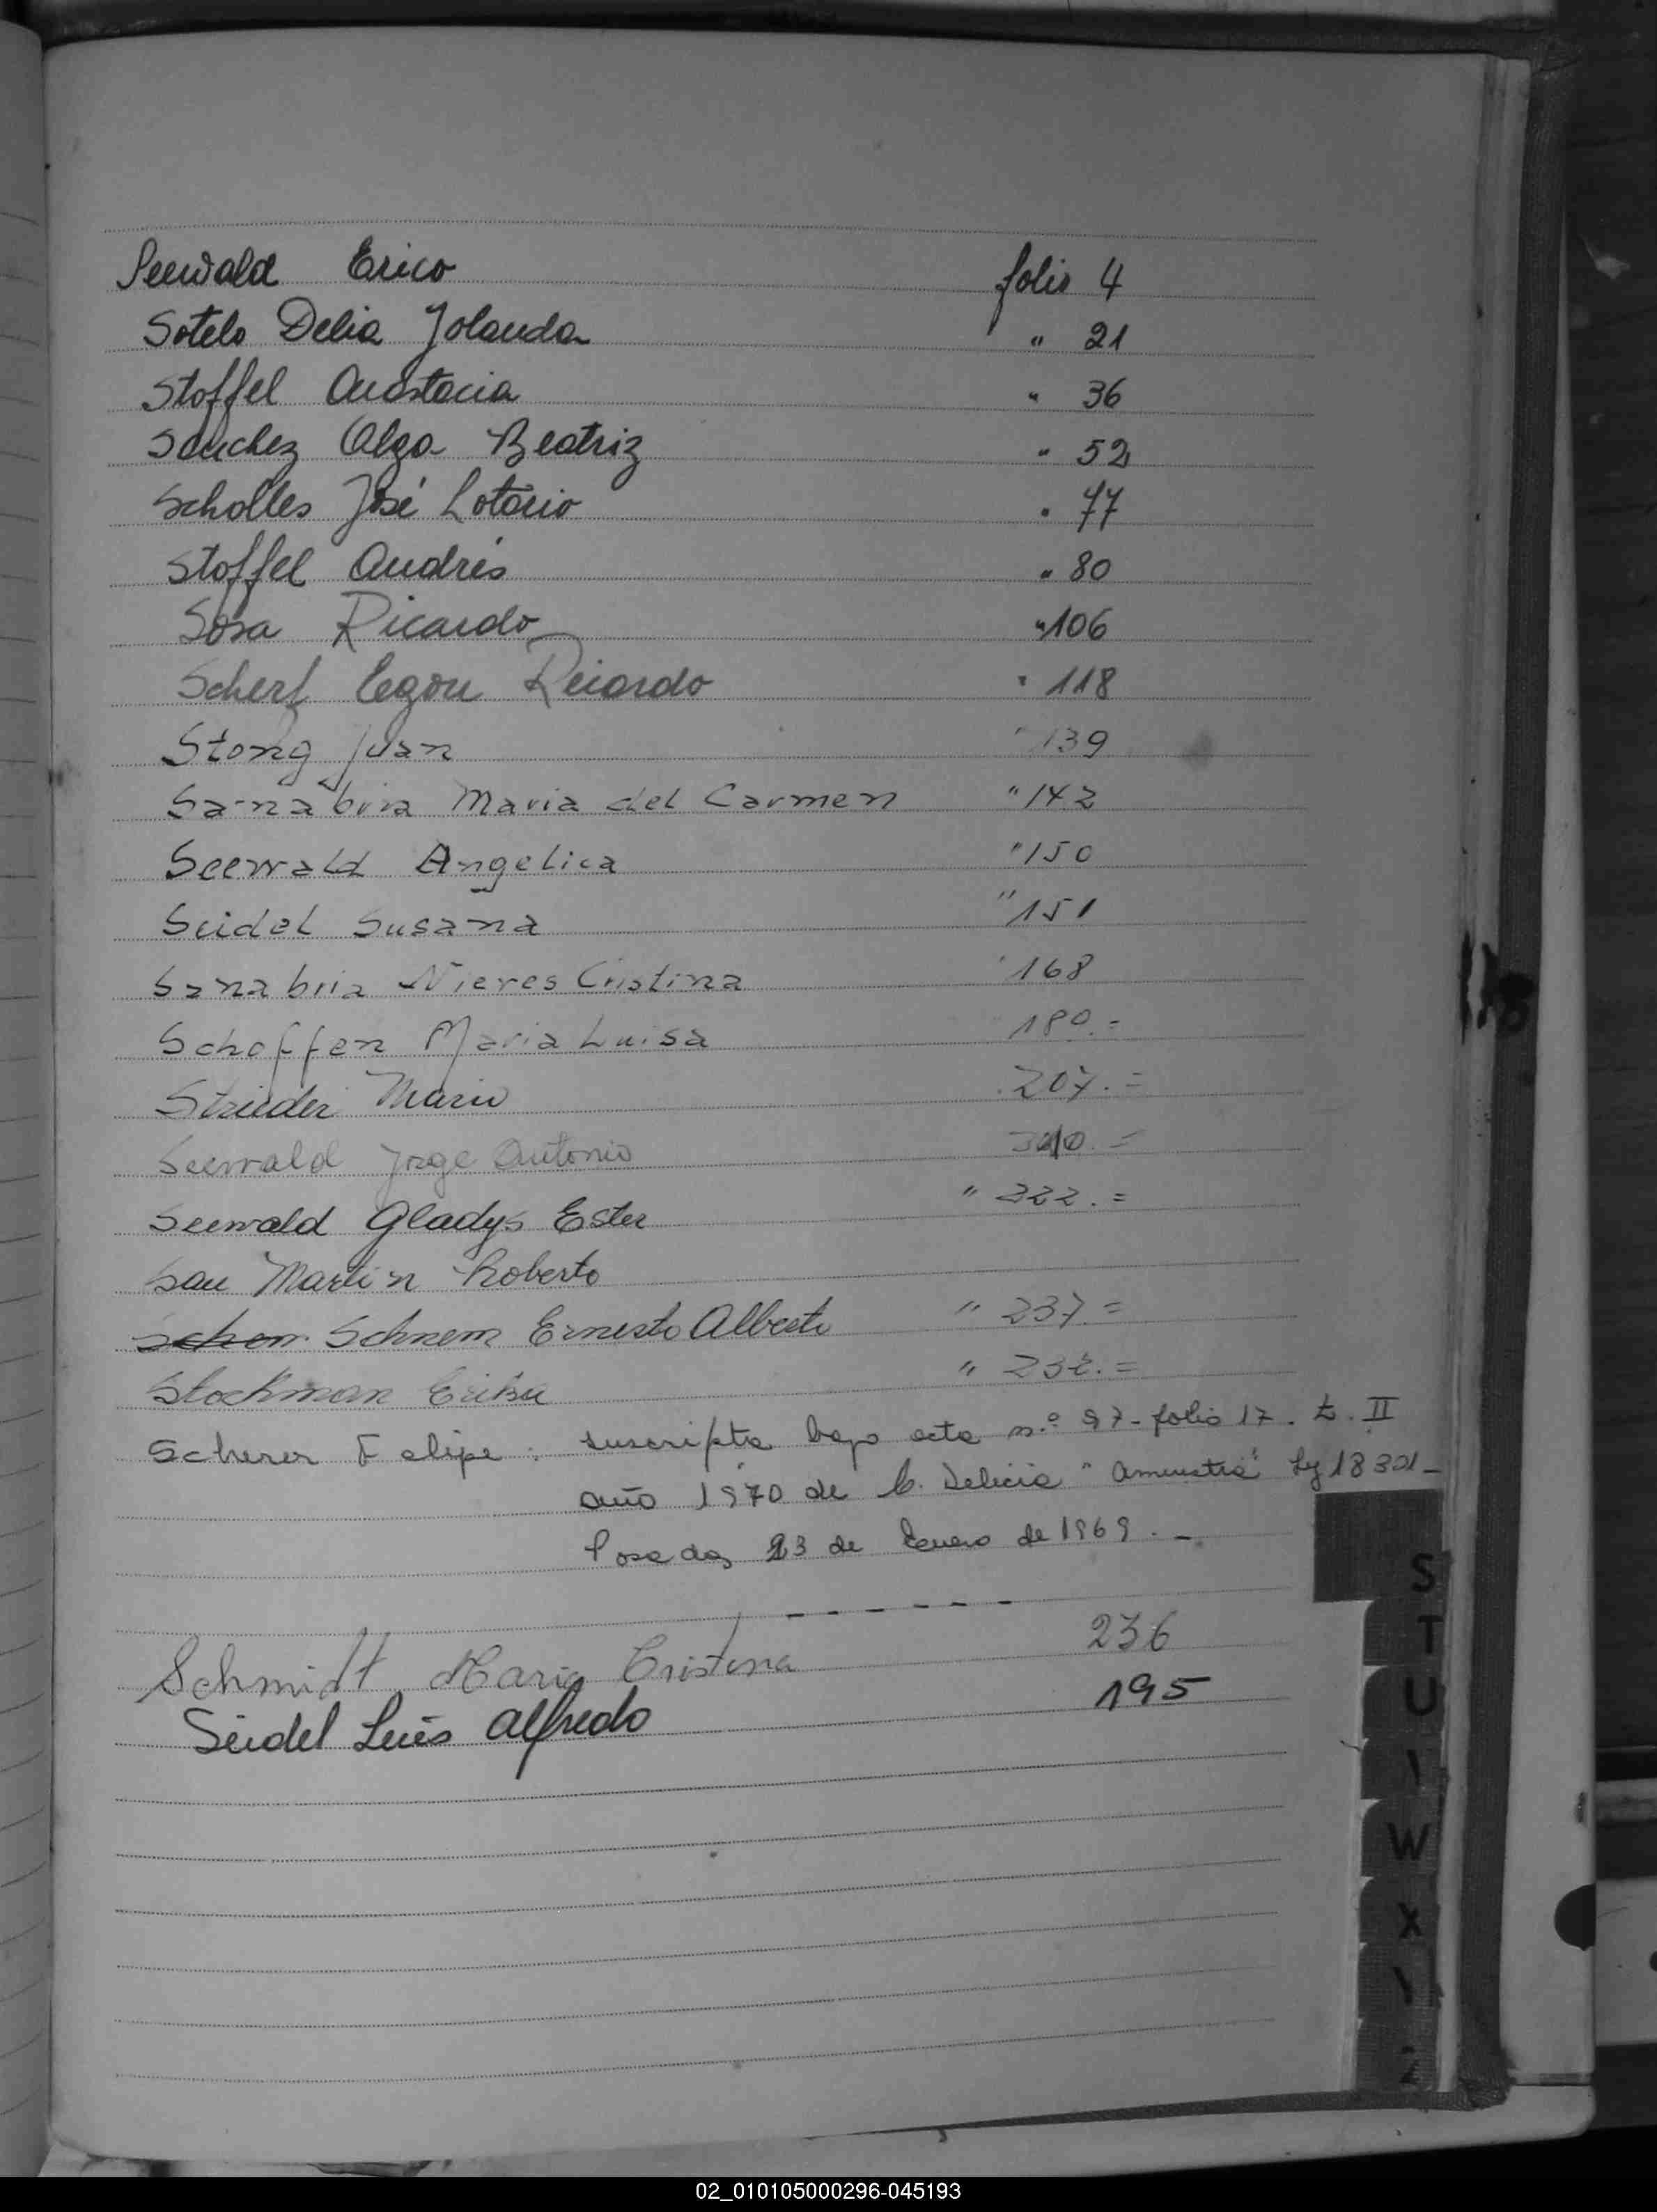 Seewald Erico folio 4
Sotelo Delia Jolanda " 21
Stoffel Anastacia " 36
Sanchez Olga Beatriz " 52
Scholles José Lotario " 77
Stoffel Andrés " 80
Sosa Ricardo " 106
Scherf Egon Ricardo " 118
Stong Juan " 139
Sanabria Maria del Carmen " 142
Seewald Angelica " 150
Seidel Susana " 151
Sanabria Nieves Cristina " 168
Schoffen Maria Luisa 180.=
Strieder Mario 207.=
Seewald Jorge Antonio
Seewald Gladys Ester " 222.=
San Martin Roberto
Schnem Ernesto Alberto " 237=
Stockman Erika " 232.=
Scherer Felipe: suscripta bajo acta n.º 97-folio 17. t. II
año 1970 de C. Delicia "amnistia" Ley 18301-
Posadas 23 de Enero de 1969.-
Schmidt Maria Cristina 236
Seidel Luis Alfredo 195
S
T
U
W
X
Z
02_010105000296-045193